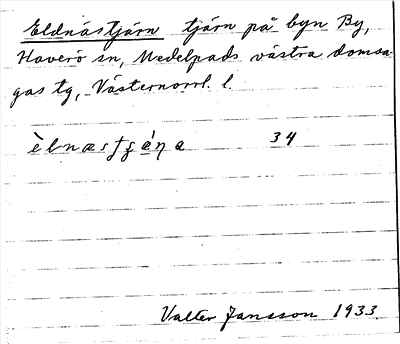 Eldnästjärn tjärn på byn By,
Haverö sn, Medelpads västra domsa-
gas tg, Västernorrl. l.
èlnæstɟæ̀ɳa 34
Valter Jansson 1933